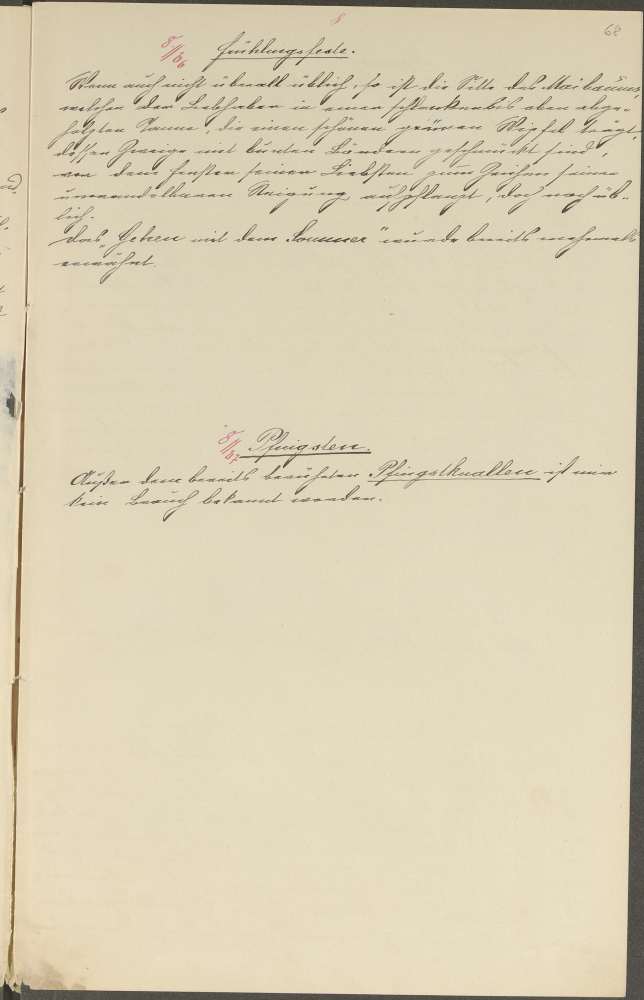 68
8/1136
Frühlingsfeste.
Wenn auch nicht überall üblich, so ist die Sitte des Maibaumes,
welchen der Liebhaber in einer schlanken bis oben abge-
holzten Tanne, die einen schönen grünen Wipfel trägt,
dessen Zweige mit bunten Bändern geschmückt sind,
vor dem Fenster seiner Liebsten zum Zeichen seiner
unwandelbaren Neigung aufpflanzt, doch noch üb-
lich.
Das „Gehen mit dem Sommer" wurde bereits mehrmals
erwähnt.
8/1137
Pfingsten.
Außer dem bereits berührten Pfingstknallen ist mir
kein Brauch bekannt worden.